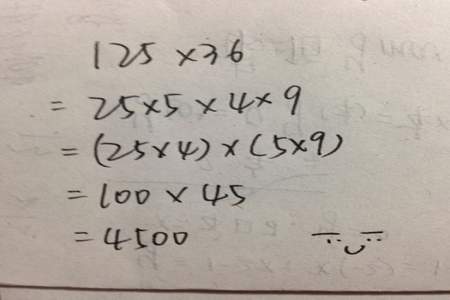 125 × 36
= 25×5 × 4×9
= (25×4) × (5×9)
= 100 × 45
= 4500